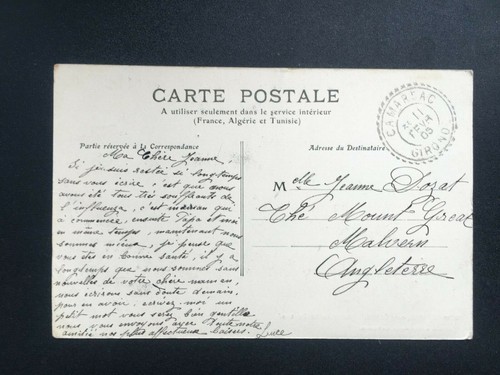 CARTE POSTALE
A utiliser seulement dans le service intérieur
(France, Algérie et Tunisie)
Partie réservée à la Correspondance
Adresse du Destinataire
CAMARSAC
11
FEVR
05
GIRONDE
Ma Chère Jeanne,
Si je suis restée si longtemps
sans vous écrire, c'est que nous avons
été tous très souffrants de
l'influenza, c'est maman qui
a commencé, ensuite Papa et moi
en même temps, maintenant nous
sommes mieux, je pense que
vous êtes en bonne santé, il y a
longtemps que nous sommes sans
nouvelles de votre chère maman,
nous écrirons sans doute demain,
pour en avoir. écrivez-moi un
petit mot vous serez bien gentille
nous vous envoyons avec toute notre
amitié nos affectueux baisers. Luce
Melle Jeanne Dozat
The Mount Great
Malvern
Angleterre